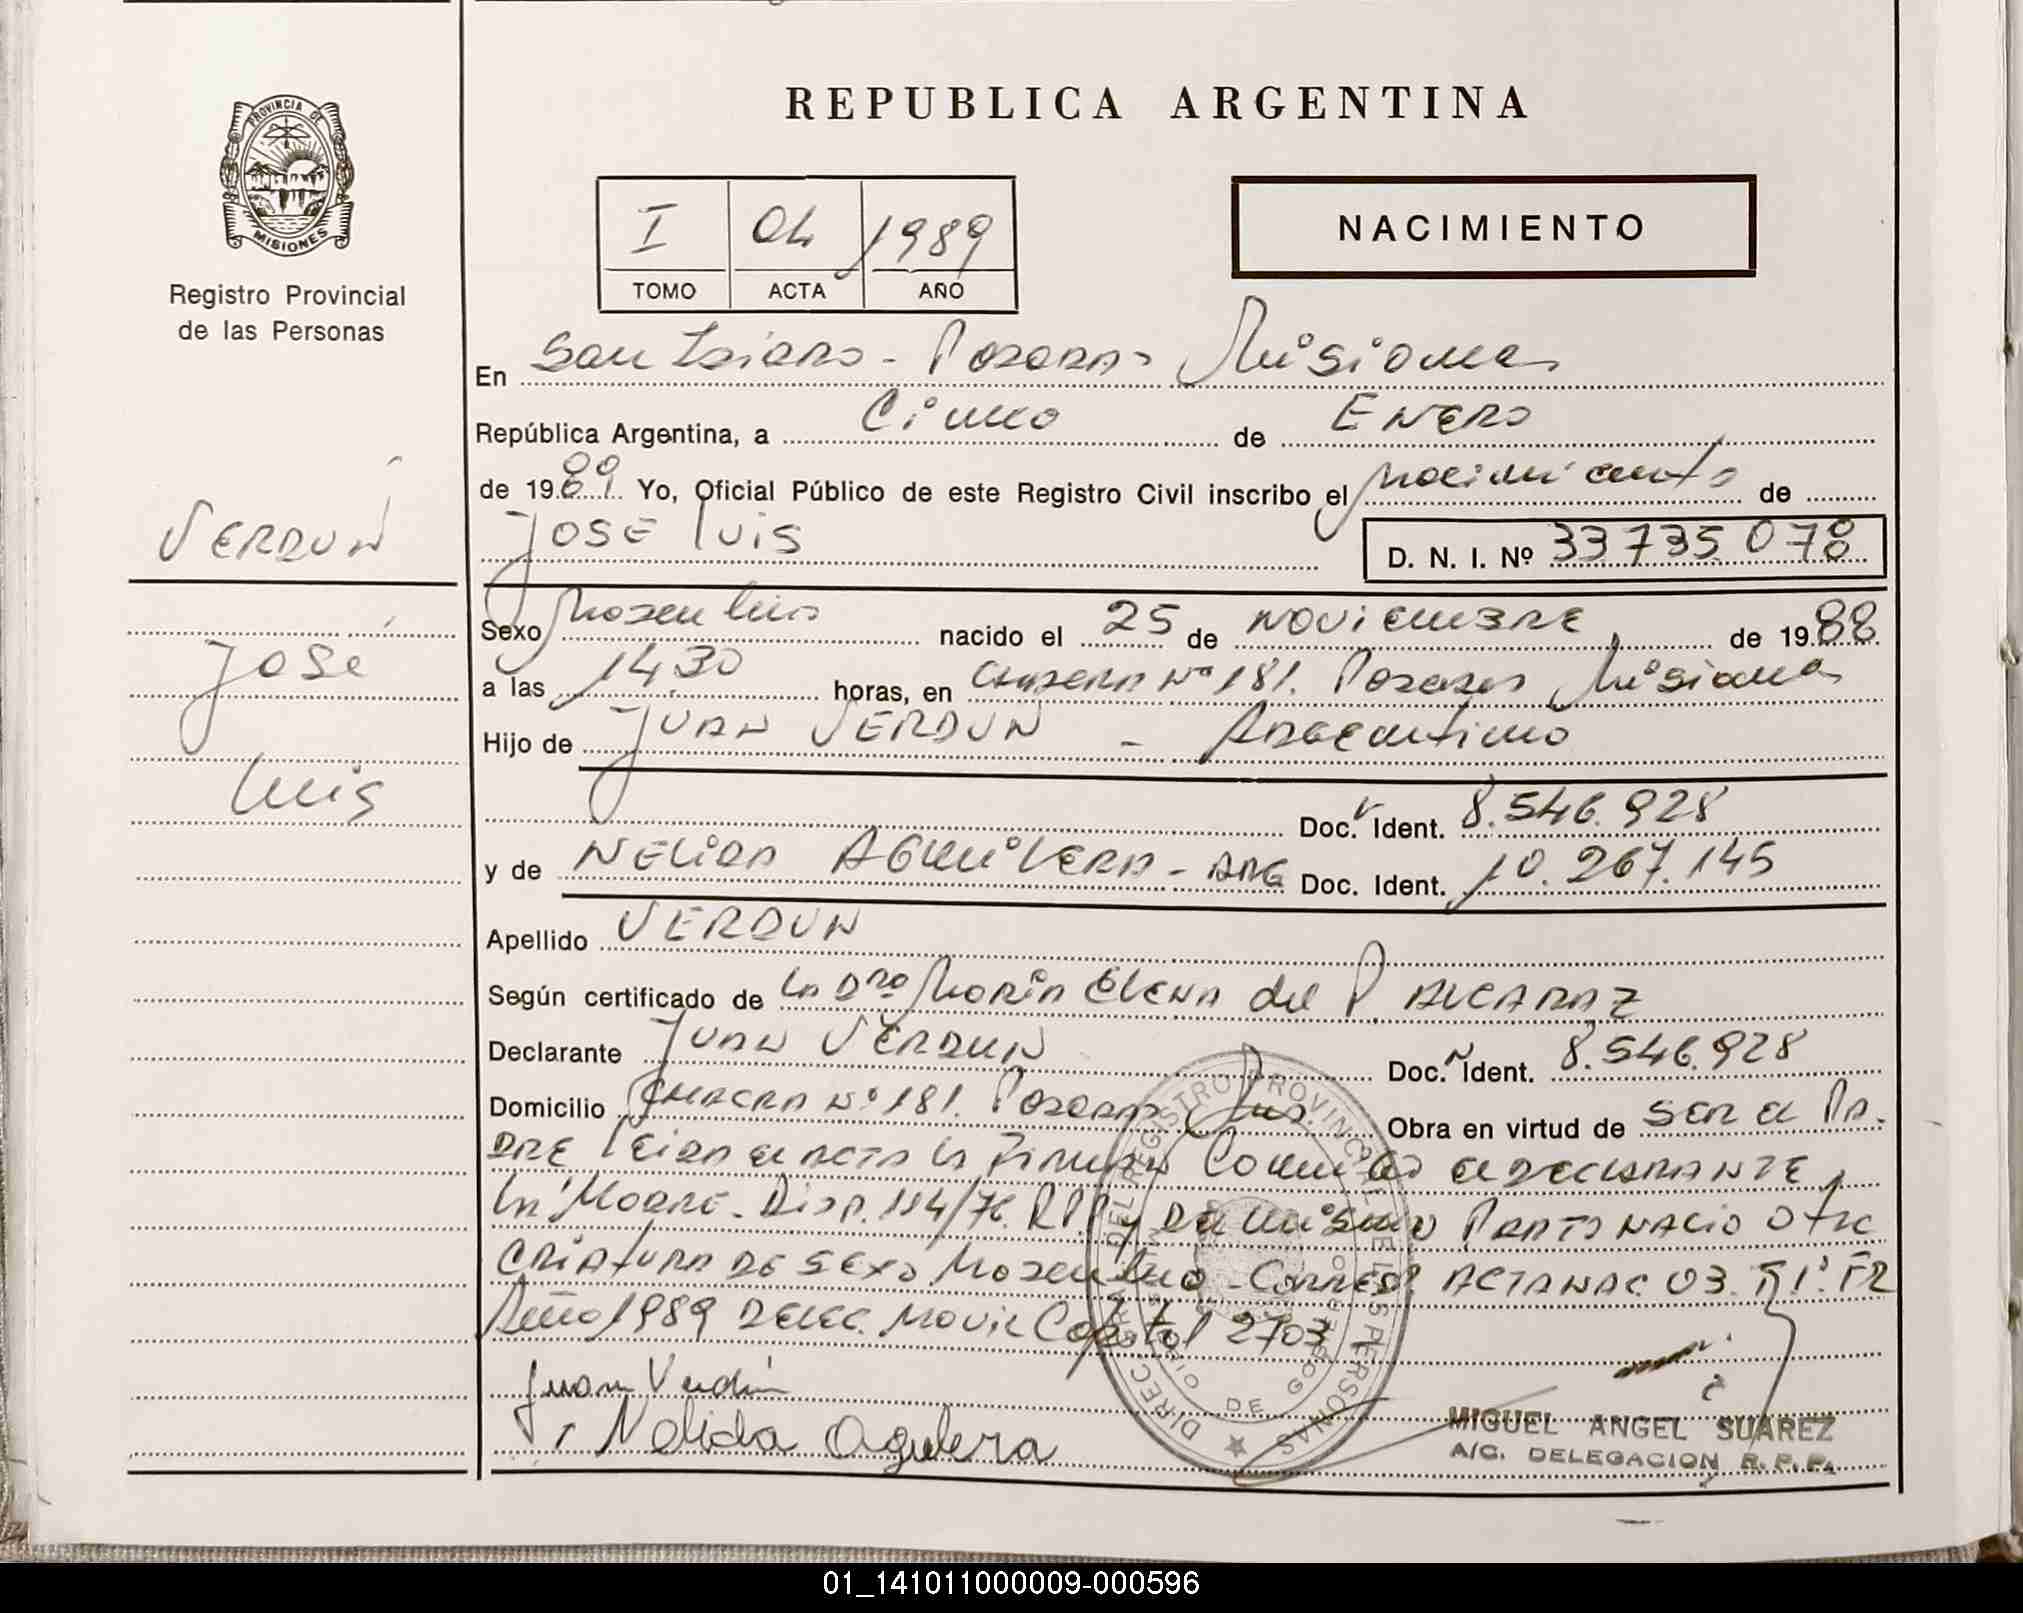 PROVINCIA DE
MISIONES
Registro Provincial
de las Personas
REPUBLICA ARGENTINA
I 04 1989
TOMO ACTA AÑO
NACIMIENTO
En San Isidro - Posadas Misiones
República Argentina, a Cinco de Enero
de 1989 Yo, Oficial Público de este Registro Civil inscribo el Nacimiento de
JOSE LUIS
D. N. I. Nº 33735078
VERDUN
José
Luis
Sexo Masculino nacido el 25 de NOVIEMBRE de 1988
a las 14,30 horas, en CHACRA Nº 181. Posadas Misiones
Hijo de JUAN VERDUN - Argentino
Doc. Ident. 8.546.928
y de NELIDA AGUILERA - ARG Doc. Ident. 10.267.145
Apellido VERDUN
Según certificado de la Dra María Elena del P. ALCARAZ
Declarante JUAN VERDUN Doc. Ident. 8.546.928
Domicilio CHACRA Nº 181. Posadas Mis. Obra en virtud de SER el PA-
DRE leida el ACTA la Firman Conmigo el DECLARANTE y
la MADRE. Disp. 114/76. RPP y Del Mismo PARTO NACIO otra
CRIATURA DE SEXO Masculino - CORRESP. ACTA NAC. 03. Tº 1º
Año 1989 DELEG. MOVIL Capital 2703
Juan Verdún
Nelida Aguilera
DIREC. GRAL. DEL REGISTRO PROVINCIAL DE LAS PERSONAS
MIGUEL ANGEL SUAREZ
A/C. DELEGACION R. P. P.
01_141011000009-000596